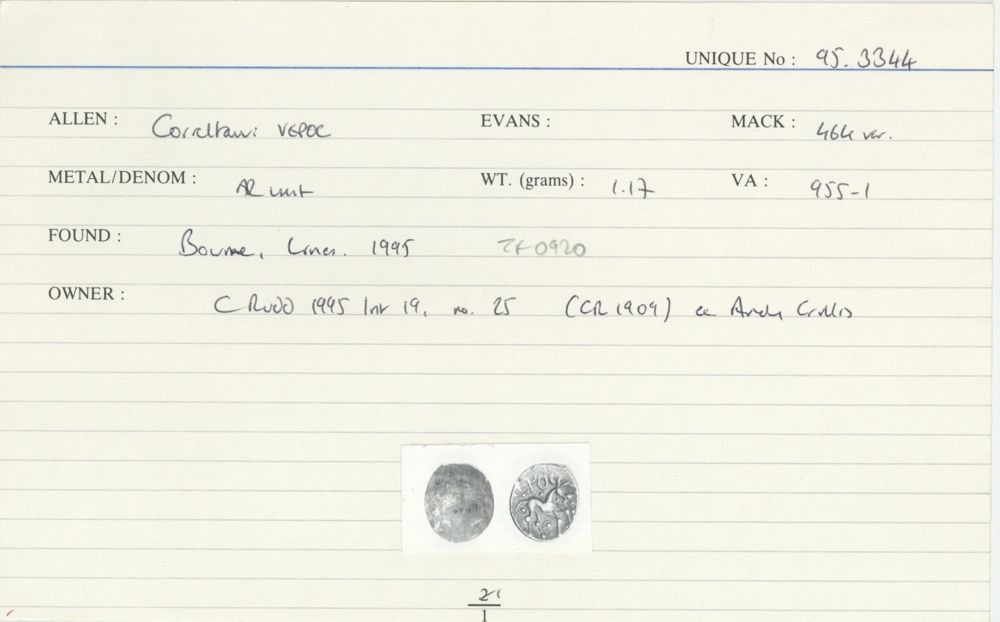 UNIQUE No : 95.3344
ALLEN : Corieltauvi VEPOC EVANS : MACK : 464 var.
METAL/DENOM : AR unit WT. (grams) : 1.17 VA : 955-1
FOUND : Bourne, Lincs. 1995 TF0920
OWNER : C RUDD 1995 list 19, no. 25 (CR 1909) ex
2
1